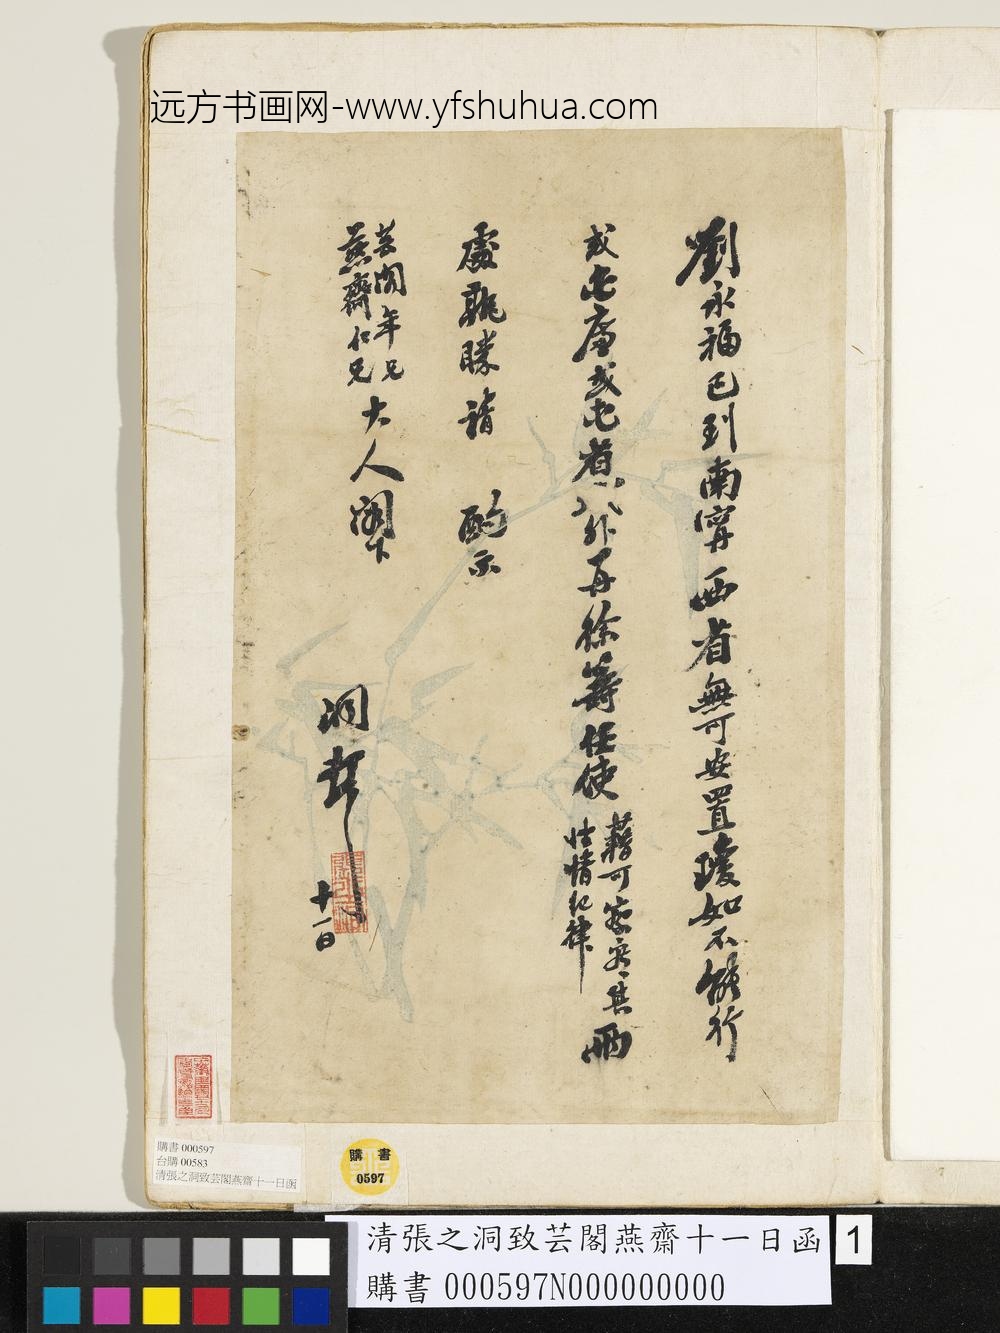 远方书画网-www.yfshuhua.com
劉永福已到南寧西省無可安置瓊如不能行
或屯廉或屯省外再徐籌任使
藉可察究其
性情紀律
兩
處孰勝請 酌示
芸閣年兄
燕齋仁兄
大人閣下
洞頓
十一日
購書 000597
台購 00583
清張之洞致芸閣燕齋十一日函
購 書
0597
清張之洞致芸閣燕齋十一日函
1
購書 000597N000000000